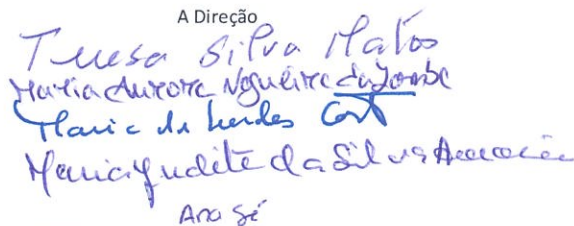 A Direção
Teresa Silva Matos
Maria Aurora Nogueira da
Maria de Lurdes
Maria Judite da Silva
Ana Sé